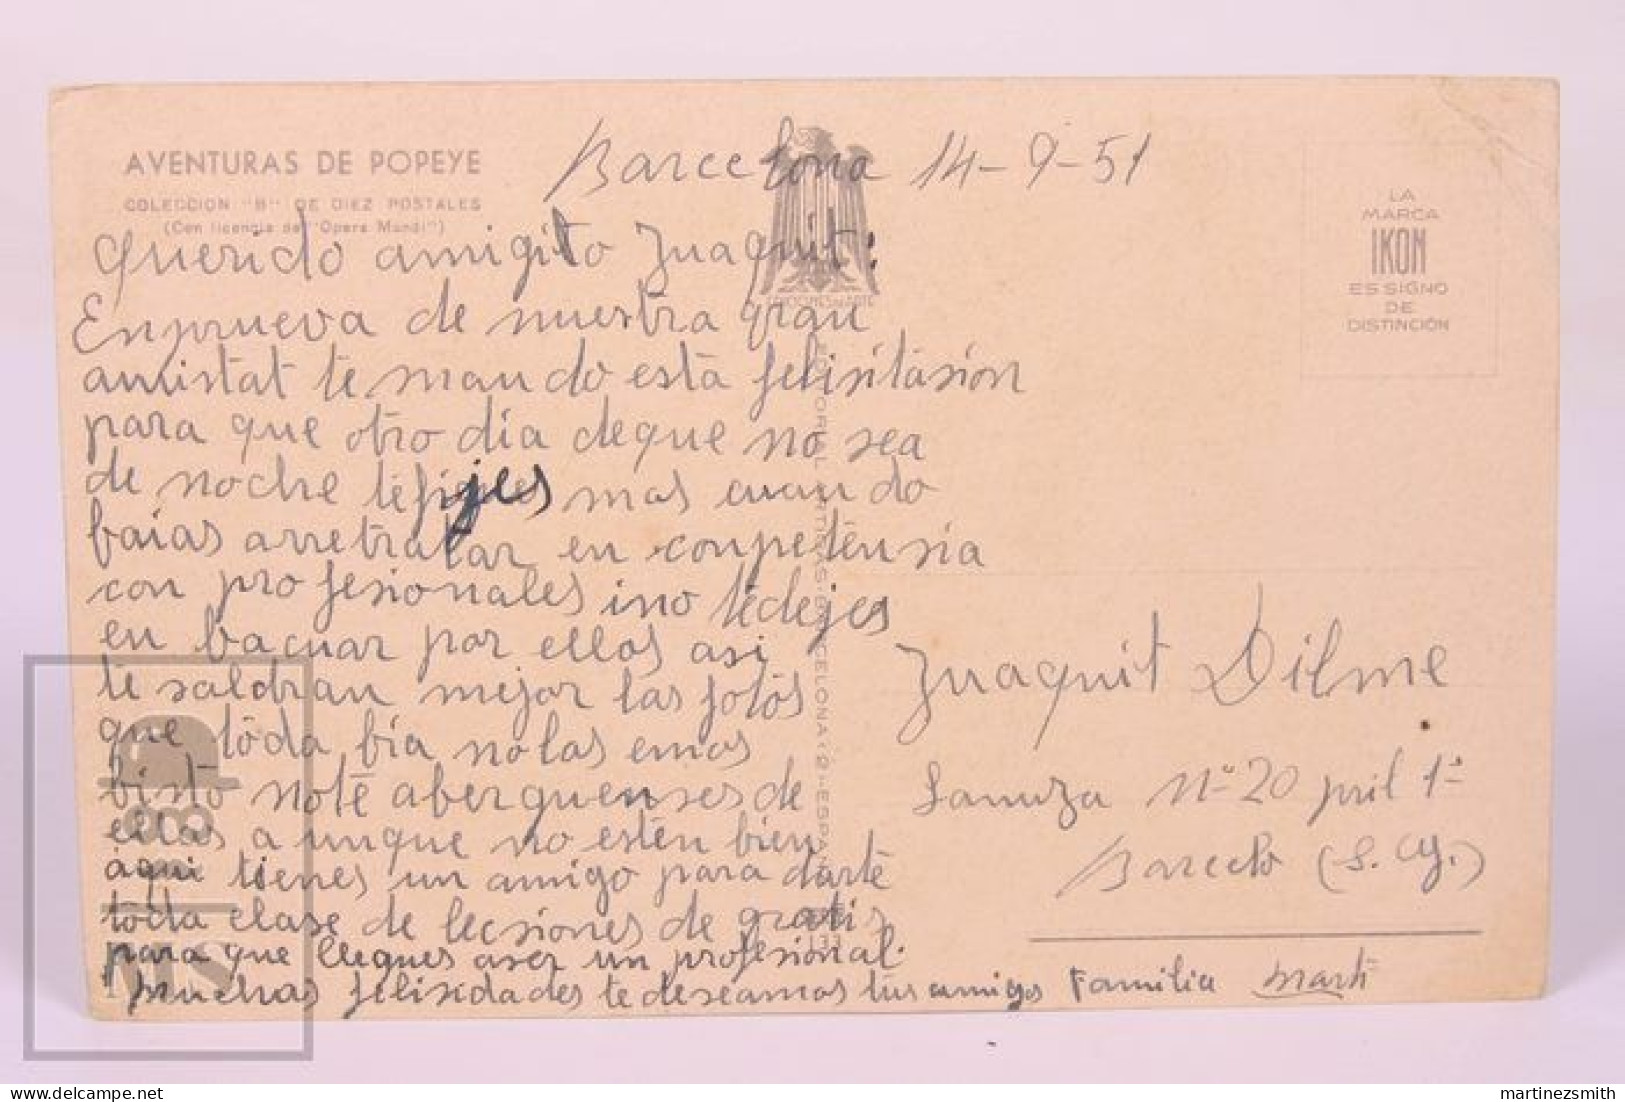 AVENTURAS DE POPEYE
COLECCION "B" DE DIEZ POSTALES
(Con licencia de "Opera Mundi")
Barcelona 14-9-51
Querido amigito Juaquit:
Enprueva de nuestra gran
amistat te mando está felisitasión
para que otro dia deque no sea
de noche tefijes mas cuando
baias arretratar en conpeténsia
con profesionales ino tédejes
en bacuar por ellos asi
te saldran mejor las fotos
que tóda bía nolas emos
bisto noté aberguensesde
ellas a unque no estén bien
aqui tienes un amigo para darté
tóda clase de lecsiones de gratis
para que llegues aser un profesional.
Muchas felisidades te deseamos tus amigos Familia Martí
EDICIONES DE ARTE
EDITORIAL ARTIGAS-BARCELONA (2)-ESPAÑA
133
LA
MARCA
IKON
ES SIGNO
DE
DISTINCIÓN
Juaquit Dilme
Lanuza Nº 20 pril 1ª
Barcelo (S. Cy.)
MS
martinezsmith